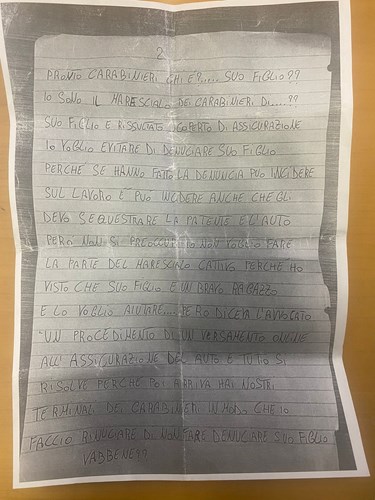 2
PRONTO CARABINIERI CHI E?..... SUO FIGLIO??
IO SONO IL MARESCIALO DEI CARABINIERI DI.....??
SUO FIGLIO E RISSULTATO SCOPERTO DI ASSIGURAZIONE
IO VOGLIO EVITARE DI DENUCIARE SUO FIGLIO
PERCHÉ SE HANNO FATTO LA DENUNCIA PUO INCIDERE
SUL LAVORO E PUO INCIDERE ANCHE CHE GLI
DEVO SEQUESTRARE LA PATENTE E L'AUTO
PERO NON SI PREOCCUPI IO NON VOGLIO FARE
LA PARTE DEL MARESCIALO CATIVO PERCHÉ HO
VISTO CHE SUO FIGLIO E UN BRAVO RAGAZZO
E LO VOGLIO AIUTARE... PERO DICEVA L'AVVOCATO
"UN PROCEDIMENTO DI UN VERSAMENTO ONLINE
ALL'ASSIGURAZIONE DEL AUTO E TUTO SI
RISOLVE PERCHE POI ARRIVA HAI NOSTRI
TERMINALI DEI CARABINIERI IN MODO CHE IO
FACCIO RINUCIARE DI NON FARE DENUCIARE SUO FIGLIO
VABBENE??